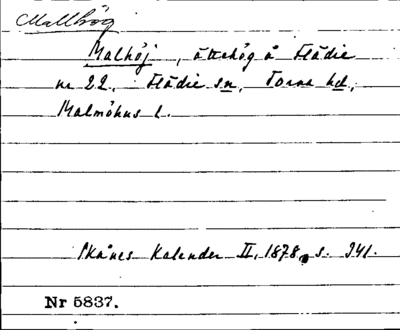 Mallhög
Malhöj, ättehög å Flädie
nr 22. Flädie sn, Torna hd,
Malmöhus l.
Skånes Kalender II, 1878, s. 341.
Nr 5837.